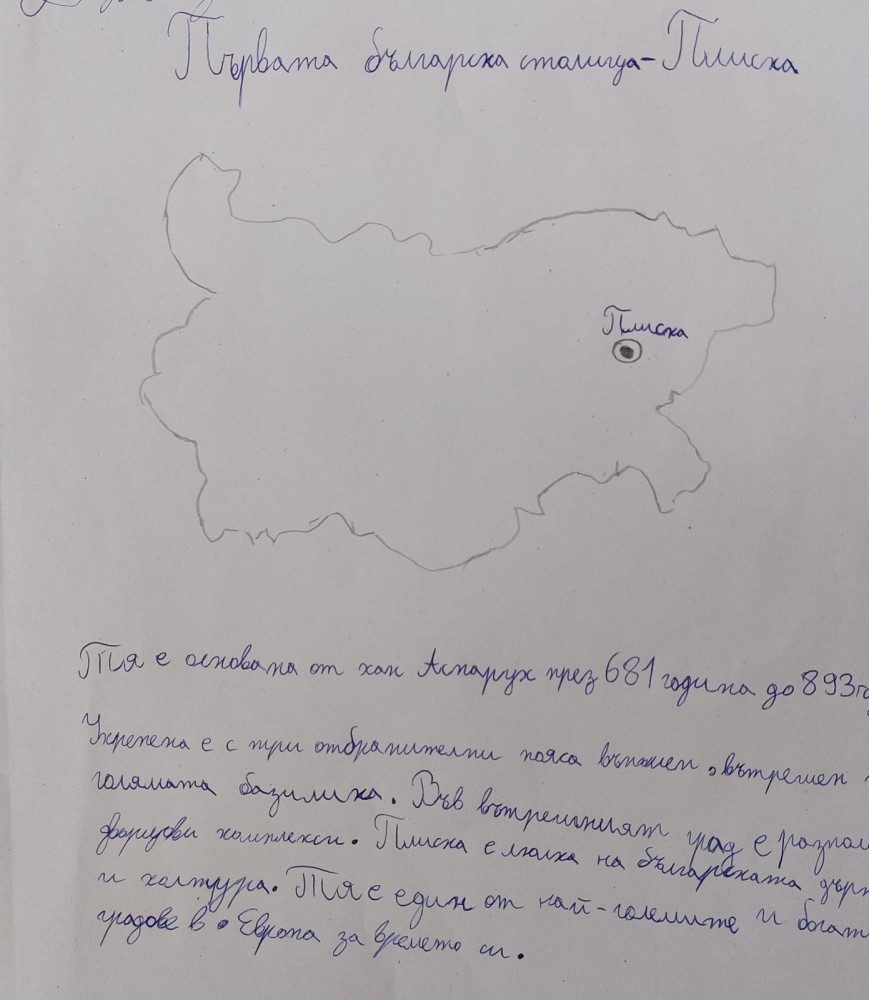 Първата българска столица - Плиска
Плиска
Тя е основана от хан Аспарух през 681 година до 893 го
Укрепена е с три отбранителни пояса външен, вътрешен
голямата базилика. Във вътрешният град е разпол
дворцови комплекси. Плиска е люлка на българската държ
и холтура. Тя е един от най-големите и богат
градове в Европа за времето си.